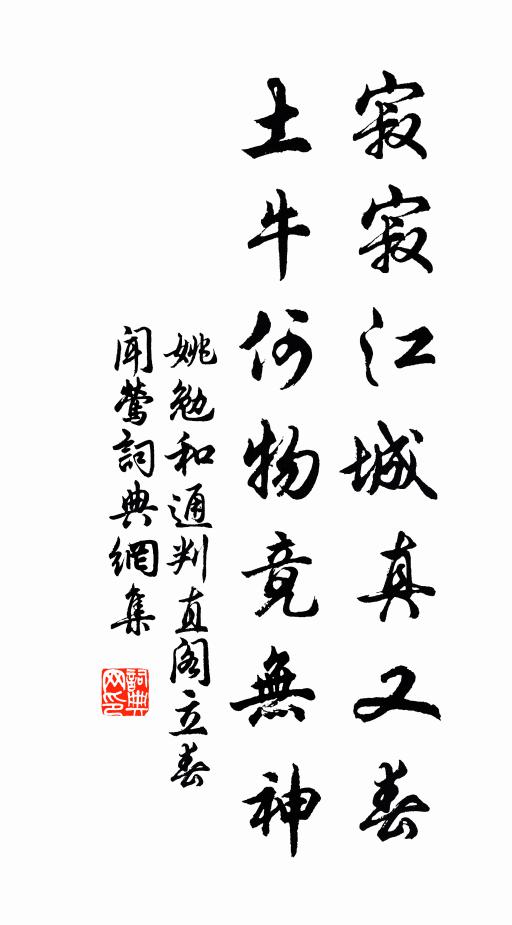 寂寂江城真又春
土牛何物竟無神
姚勉和通判直阁立春
闻莺詞典網集
詞典
网印